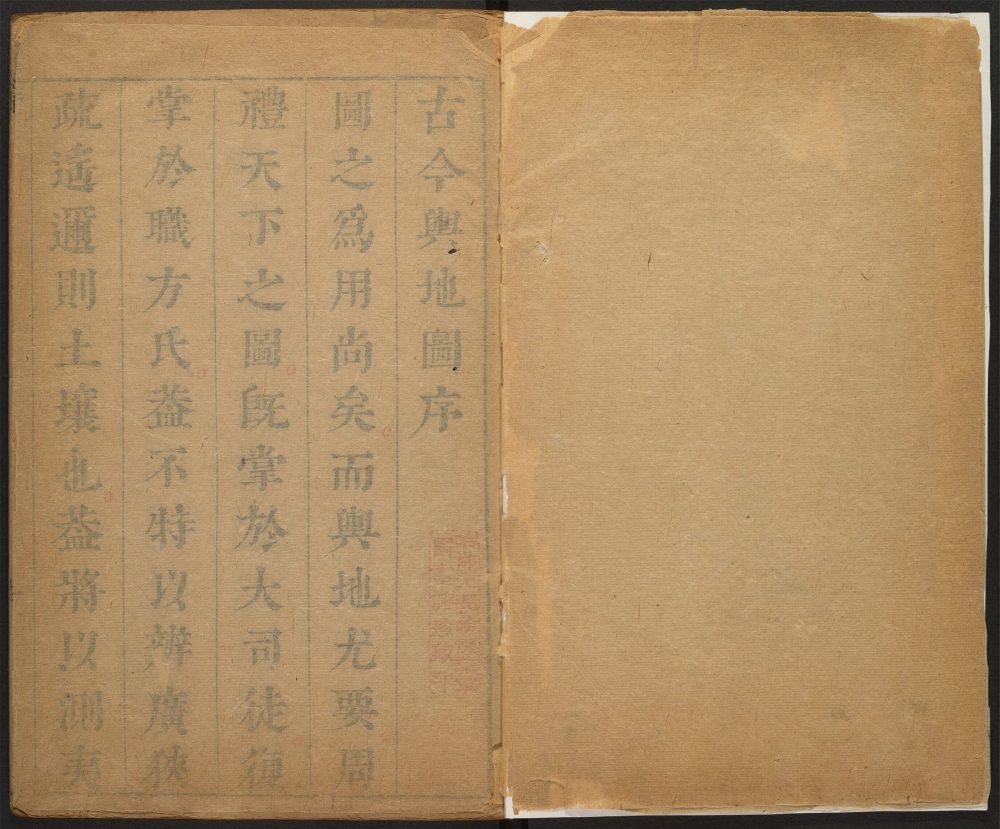 古今輿地圖序
圖之爲用尚矣而輿地尤要周
禮天下之圖旣掌於大司徒復
掌於職方氏葢不特以辨廣狹
疏遙邇則土壤也葢將以測夷